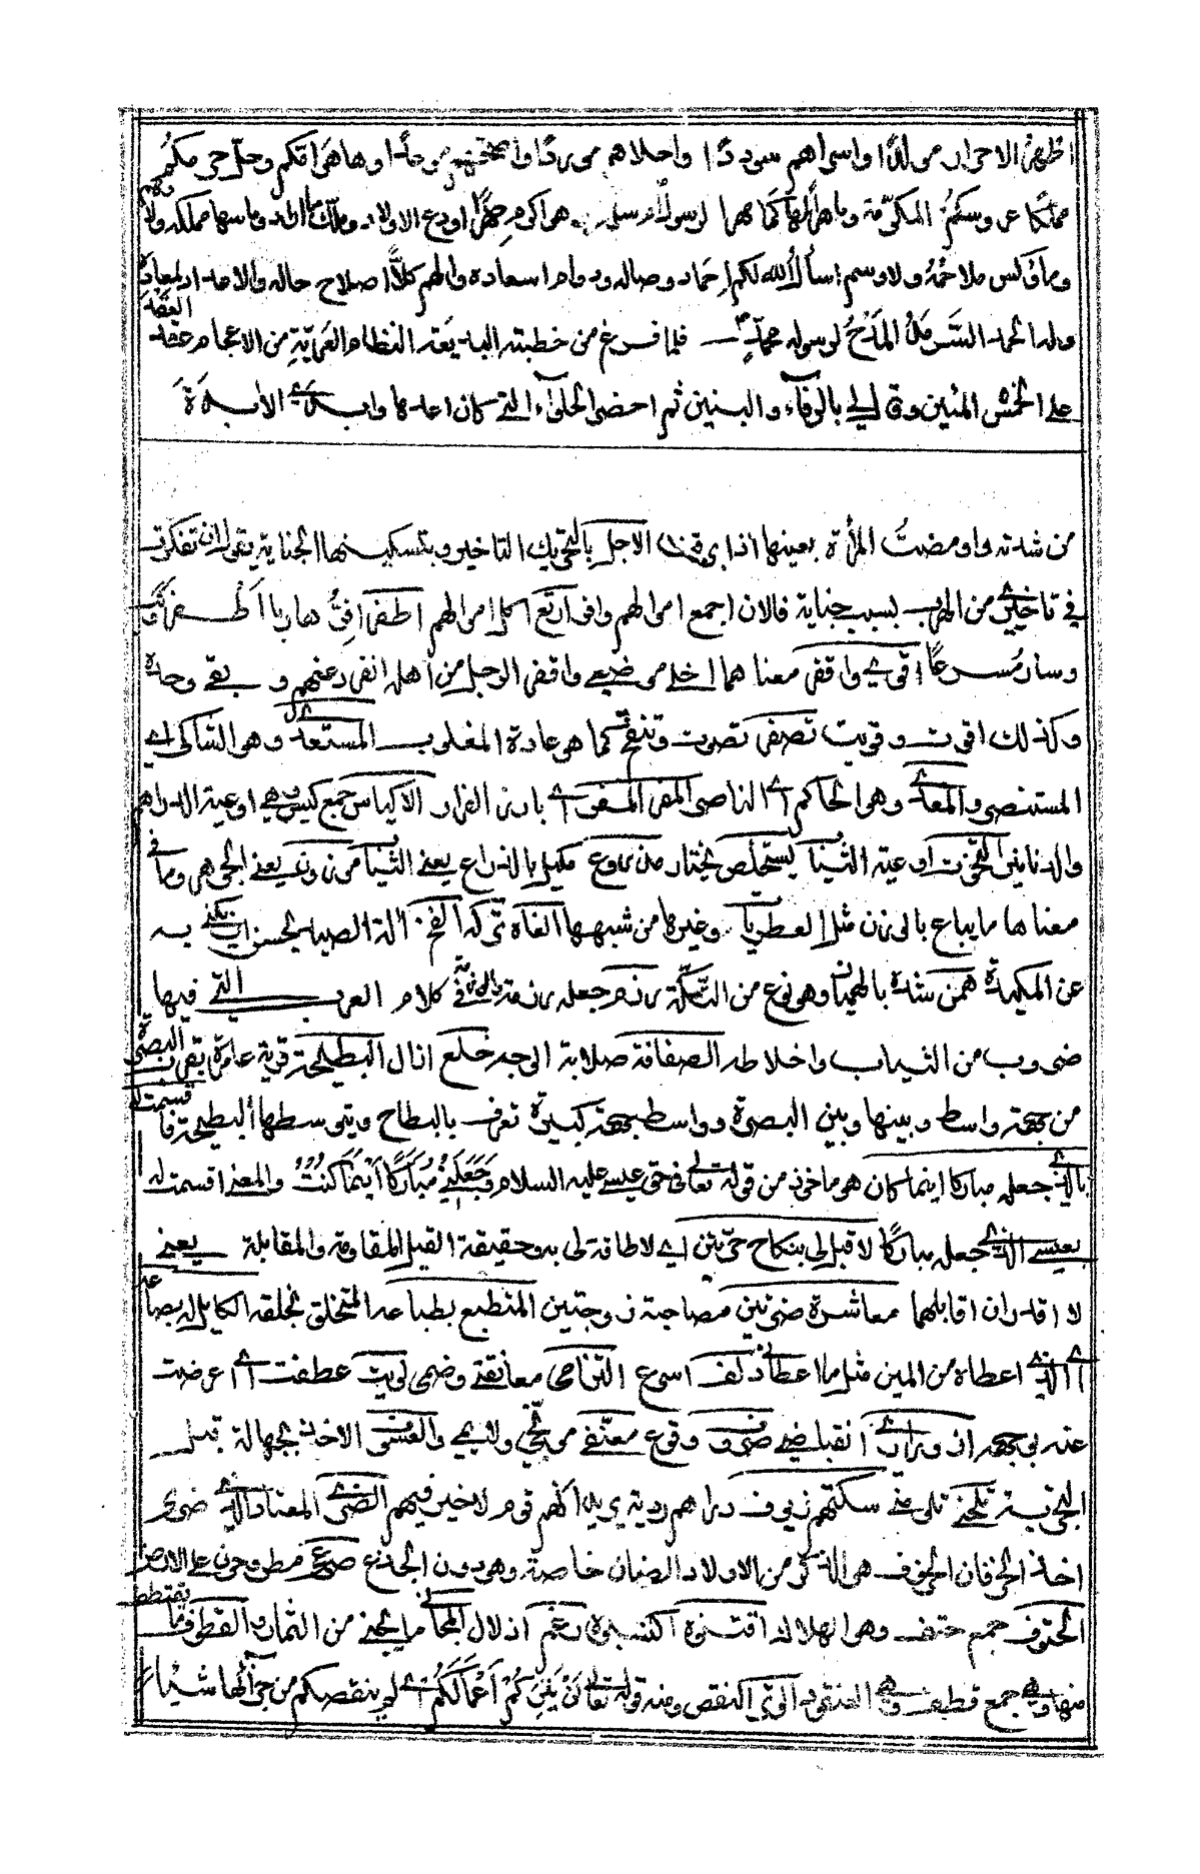 اطهر الاحرار مولدًا واسراهم سوددًا واحلاهم موردًا واصحهم موعدا وها هو اتكم وحل حرمكم
مملكا عروسكم المكرمة وماهرا لها كما مهر الرسول ام سلمه وهو اكرم صهر اودع الاولاد وملك ما اراد وما سها مملكه ولا وهم
ولا وكس ملاحمه ولا وسم اسأل الله لكم احماد وصاله ودوام اسعاده والهم كلًّا اصلاح حاله والاعداد لمعاده
وله الحمد السرمد والمدح لرسوله محمد فلما فرغ من خطبته البديعة النظام العرية من الاعجام عقد العقد
على الخمس المئين وقال لي بالرفاء والبنين ثم احضر الحلواء التي كان اعدها وابدى الآبدة
من شدته واومضت المرأة بعينها اذا برقت الاجل بالتحريك التاخير وبتسكينها الجناية يقول ان تفكرت
في تاخيري من الهرب بسبب جناية فالان اجمع اموالهم وافر ارتع اكل اموالهم اطفر افر هاربا
وسار مسرعًا اقوى واقفر معناهما اخلى موضعي واقفر الرجل من اهله انفرد عنهم وبقي وحده
وكذلك اقوت وقويت تصفر تصوت وتنفخ كما هو عادة المغلوب المستعدي وهو الشاكي اي
المستنصر والمعدي وهو الحاكم اي الناصر المفر المفر اي بارض الفرار الاكياس جمع كيس وهي اوعية الدراهم
والدنانير التخوت اوعية الثياب يستخلص يختار مذروع مكيل بالذراع يعني الثياب موزون يعني الجوهر وما في
معناها ما يباع بالوزن مثل العطريات وغيرها من شبهها الغاه تركه الفخ آلة الصياد لحسن ان يكنى به
عن المكيدة همن شده بالهميان وهو نوع من التكة رزم جعله رزمة والرزمة في كلام العرب التي فيها
ضروب من الثياب واخلاط الصفاقة صلابة الوجه خلع ازال البطيحة قرية عامرة بقرب البصرة
من جهة واسط وبينها وبين البصرة وواسط جهة كبيرة تعرف بالبطاح ويتوسطها البطيحة فا قسمت له
بالذي جعله مباركا اينما كان هو ماخوذ من قوله تعالى في حق عيسى عليه السلام وَجَعَلَنِي مُبَارَكًا أَيْنَمَا كُنْتُ والمعنى اقسمت له
بعيسى الذي جعله مباركًا لا قبل لي بنكاح حرتين اي لا طاقة لي به وحقيقة القبل المقاومة والمقابلة يعني
لا اقدر ان اقابلهما معاشرة ضرتين مصاحبة زوجتين المنطبع بطباعه المتخلق بخلقه الكايل له بصاعه
اي الذي اعطاه من المين مثل ما اعطاه دلف اسرع التزامي معانقتي وضمي لويت عطفت اي اعرضت
عنه بوجهي ازوراري انقباضي ضروف وقوع معتفى والغشى الاخذ بجهالة قبل
التجربة تلحني تلومني سكتهم زيوف دراهم ردية يريد انهم قوم لا خير فيهم الضري المعتاد الذي ضري
اخذ الخرفان الخروف هو الذكر من اولاد الضان خاصة وهو دون الجذع صرعى مطروحون على الارض
الحتوف جمع حتف وهو الهلاك اقتنوه اكتسبوه رغم اذلال المجاني ما يجنى من الثمار القطوف ما يقتطف
منها وهي جمع قطف وهي العنقود الوتر النقص ومنه قوله تعالى لَنْ يَتِرَكُمْ أَعْمَالَكُمْ اي لن ينقصكم من جزائها شيئا